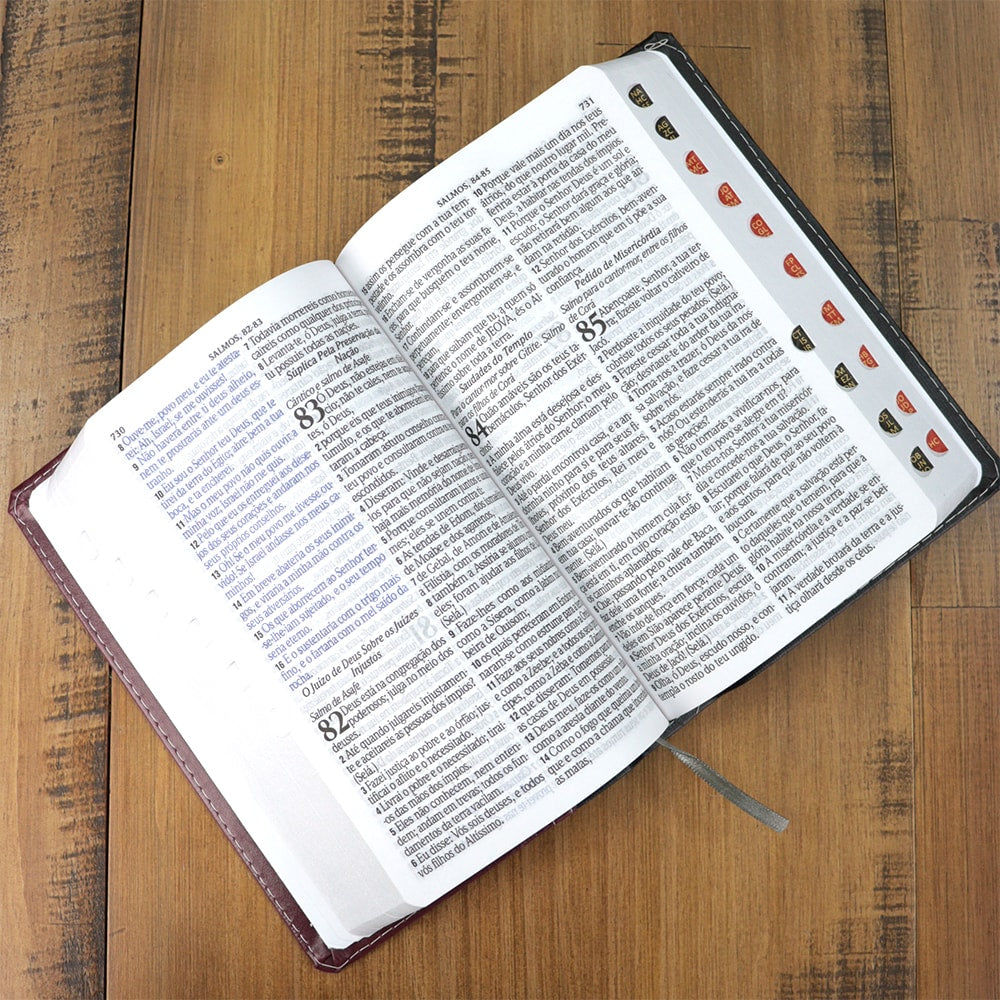 730
SALMOS, 82-83
8 Ouve-me, povo meu, e eu te atesta-
rei: Ah, Israel, se me ouvisses!
9 Não haverá entre ti deus alheio,
nem te prostrarás ante um deus es-
tranho.
10 Eu sou o Senhor teu Deus, que te
tirei da terra do Egito; abre bem a tua
boca, e ta encherei.
11 Mas o meu povo não quis ouvir a
minha voz, e Israel não me quis.
12 Pelo que eu os entreguei aos dese-
jos dos seus corações, e andaram nos
seus próprios conselhos.
13 Oh! Se o meu povo me tivesse ou-
vido! Se Israel andasse nos meus ca-
minhos!
14 Em breve abateria os seus inimi-
gos, e viraria a minha mão contra os
seus adversários.
15 Os que aborrecem ao Senhor ter-
-se-lhe-iam sujeitado, e o seu tempo
seria eterno.
16 E o sustentaria com o trigo mais
fino, e o fartaria com o mel saído da
rocha.
O Juízo de Deus Sobre os Juízes
Injustos
Salmo de Asafe
82 Deus está na congregação dos
poderosos; julga no meio dos
deuses.
2 Até quando julgareis injustamen-
te e aceitareis as pessoas dos ímpios?
(Selá.)
3 Fazei justiça ao pobre e ao órfão; jus-
tificai o aflito e o necessitado.
4 Livrai o pobre e o necessitado; tirai-
-os das mãos dos ímpios.
5 Eles não conhecem, nem enten-
dem; andam em trevas; todos os fun-
damentos da terra vacilam.
6 Eu disse: Vós sois deuses, e todos
vós filhos do Altíssimo.
7 Todavia morrereis como homens, e
caireis como qualquer dos príncipes.
8 Levanta-te, ó Deus, julga a terra,
pois tu possuis todas as nações.
Súplica Pela Preservação da
Nação
Cântico e salmo de Asafe
83 Ó Deus, não estejas em
silêncio; não te cales, nem te aquie-
tes, ó Deus,
2 porque eis que teus inimigos
tumultu
e os que te aborrecem
a cabeça.
3 Tomaram astuto conselho contra o
teu povo e consultaram
4 Disseram: Vinde, e desarraiguemo-
-los para que não sejam nação
haja mais memória do nome de
5 Porque consultaram juntos
mes; eles se unem contra ti:
6 As tendas de Edom, dos
de Moabe e dos agarenos,
7 de Gebal, de Amom
Filístia, com os moradores
8 também a Assíria se ajuntou
eles; foram ajudar aos filhos de
9 Faze-lhes como aos
como a Sísera, como a Jabim
beira de Quisom,
10 os quais pereceram em
naram-se como estrume para
11 Faze aos seus nobres
e como a Zeebe; e a todos
cipes, como a Zeba e como
12 que disseram: Tomemos
as casas de Deus em possessão.
13 Deus meu, faze-os como
como a aresta diante do vento
14 Como o fogo que queima
que e como a chama que
as matas,
SALMOS, 84-85
731
15 assim os persegue com a tua tem-
pestade e os assombra com o teu tor-
16 Encham-se de vergonha as suas fa-
ces, para que busquem o teu nome,
17 Confundam-se e assombrem-se
perpetuamente; envergonhem-se, e
18 Para que saibam que tu, a quem só
pertence o nome de JEOVÁ, és o Al-
tíssimo sobre toda a terra.
Saudades do Templo
Para o cantor-mor sobre Gitite. Salmo
dos filhos de Corá
84 Quão amáveis são os teus ta-
bernáculos, Senhor dos Exér-
2 A minha alma está desejosa e des-
falece pelos átrios do Senhor; o meu
coração e a minha carne clamam pelo
3 Até o pardal encontrou casa, e a an-
dorinha ninho para si e para seus fi-
lhos, junto dos teus altares,
Senhor dos Exércitos, Rei meu e
Deus meu.
4 Bem-aventurados os que habitam
em tua casa; louvar-te-ão continua-
mente. (Selá.)
5 Bem-aventurado o homem cuja for-
ça está em ti, em cujo coração estão
os caminhos aplanados,
6 Que, passando pelo vale de Baca,
faz dele uma fonte; a chuva também
enche os tanques.
7 Vão indo de força em força; cada um
deles em Sião aparece perante Deus.
8 Senhor Deus dos Exércitos, escuta
a minha oração; inclina os ouvidos, ó
Deus de Jacó! (Selá.)
9 Olha, ó Deus, escudo nosso, e con-
templa o rosto do teu ungido.
10 Porque vale mais um dia nos teus
átrios, do que noutro lugar mil. Pre-
feriria estar à porta da casa do meu
Deus, a habitar nas tendas dos ímpios.
11 Porque o Senhor Deus é um sol e
escudo; o Senhor dará graça e glória;
não retirará bem algum aos que an-
dam na retidão.
12 Senhor dos Exércitos, bem-aven-
turado o homem que em ti põe a sua
confiança.
Pedido de Misericórdia
Salmo para o cantor-mor, entre os filhos
de Corá
85 Abençoaste, Senhor, a tua ter-
ra; fizeste voltar o cativeiro de
Jacó.
2 Perdoaste a iniquidade do teu povo;
cobriste todos os seus pecados. (Selá.)
3 Fizeste cessar toda a tua indigna-
ção; desviaste-te do ardor da tua ira.
4 Torna-nos a trazer, ó Deus da nos-
sa salvação, e faze cessar a tua ira de
sobre nós.
5 Acaso estarás sempre irado contra
nós? Ou estenderás a tua ira a todas
as gerações?
6 Não tornarás a vivificar-nos, para
que o teu povo se alegre em ti?
7 Mostra-nos, Senhor, a tua misericór-
dia, e concede-nos a tua salvação.
8 Escutarei o que Deus, o Senhor, fa-
lar; porque falará de paz ao seu povo
e aos santos, para que não voltem à
loucura.
9 Certamente que a salvação está per-
to daqueles que o temem, para que a
glória habite na nossa terra.
10 A misericórdia e a verdade se en-
contraram: a justiça e a paz se bei-
jaram.
11 A verdade brotará da terra e a jus-
tiça olhará desde os céus.
NA
HC
AG
ZC
ML
MT
MC
JO
AT
CO
GL
FP
CL
TM
TT
HB
HC